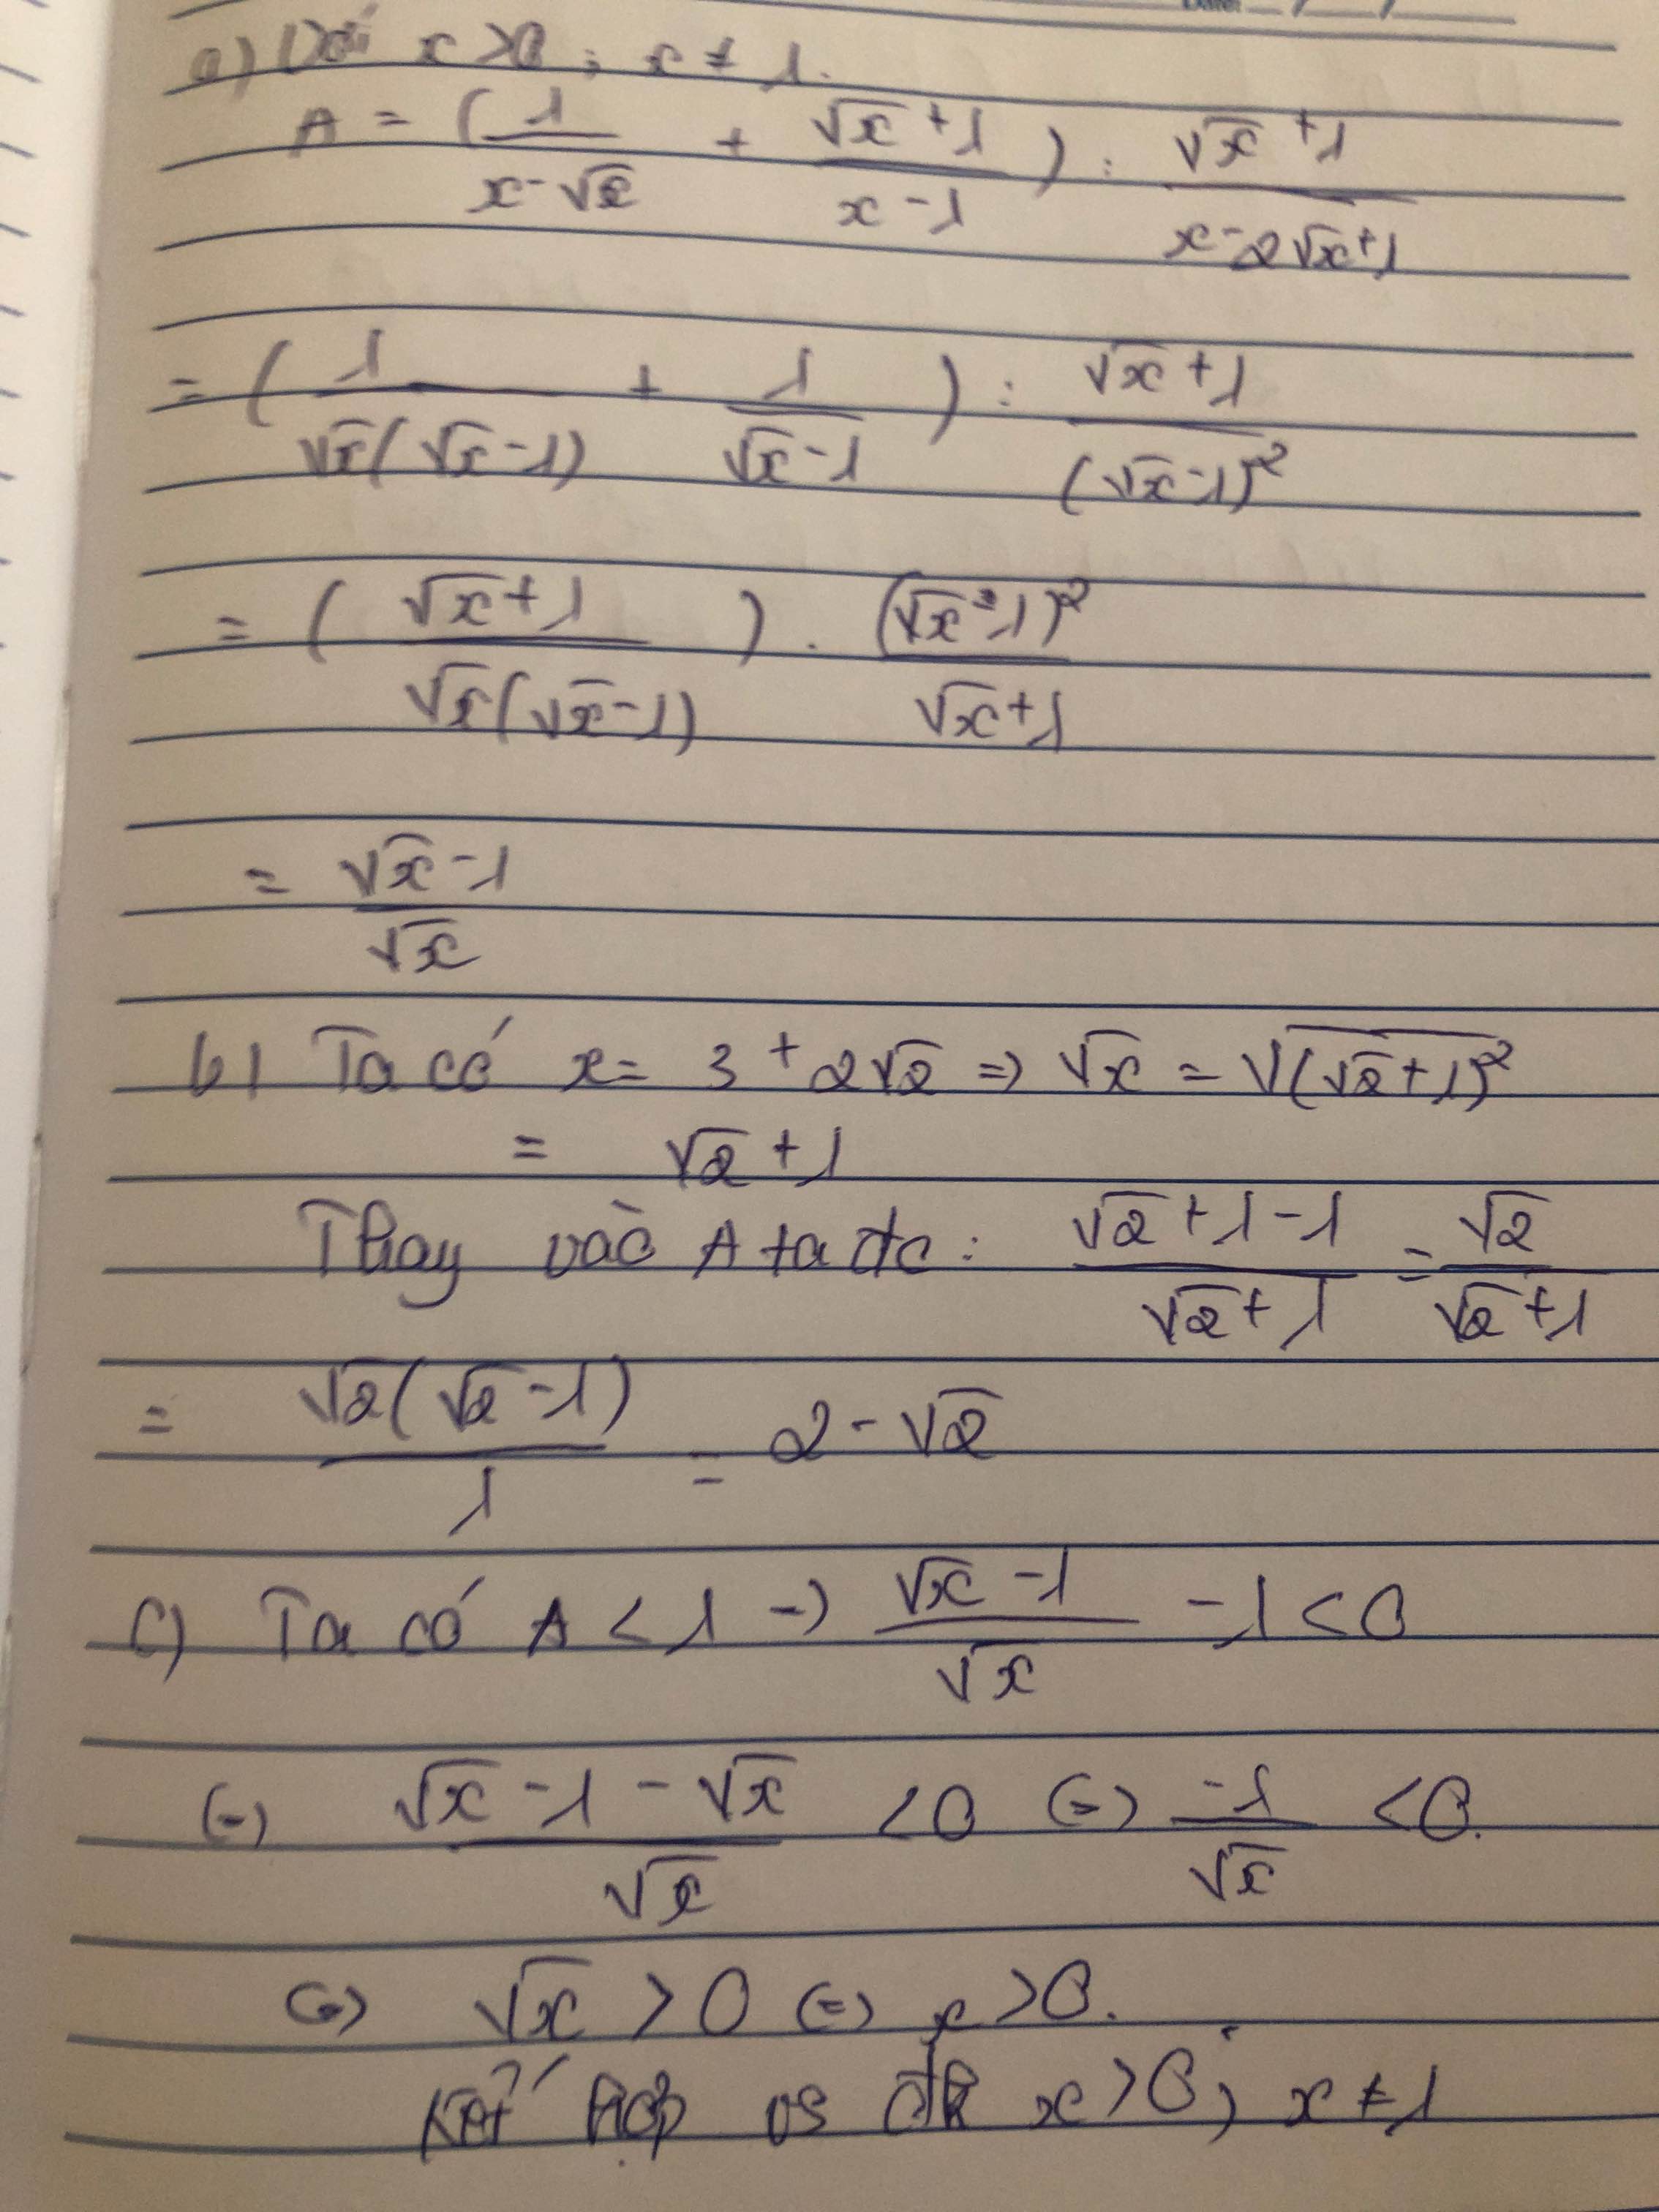 Date: __/__/____
a) Với x > 0 ; x ≠ 1.
A = ( 1/(x-√x) + (√x+1)/(x-1) ) : (√x+1)/(x-2√x+1)
= ( 1/(√x(√x-1)) + 1/(√x-1) ) : (√x+1)/(√x-1)²
= ( (√x+1)/(√x(√x-1)) ) . (√x-1)²/(√x+1)
= (√x-1)/√x
b) Ta có x = 3+2√2 => √x = √((√2+1)²)
= √2+1
Thay vào A ta đc : (√2+1-1)/(√2+1) = √2/(√2+1)
= √2(√2-1)/1 = 2-√2
c) Ta có A < 1 -> (√x-1)/√x -1 < 0
(=) (√x-1-√x)/√x < 0 (=) -1/√x < 0.
(=) √x > 0 (=) x > 0.
Kết hợp vs đk x > 0 ; x ≠ 1